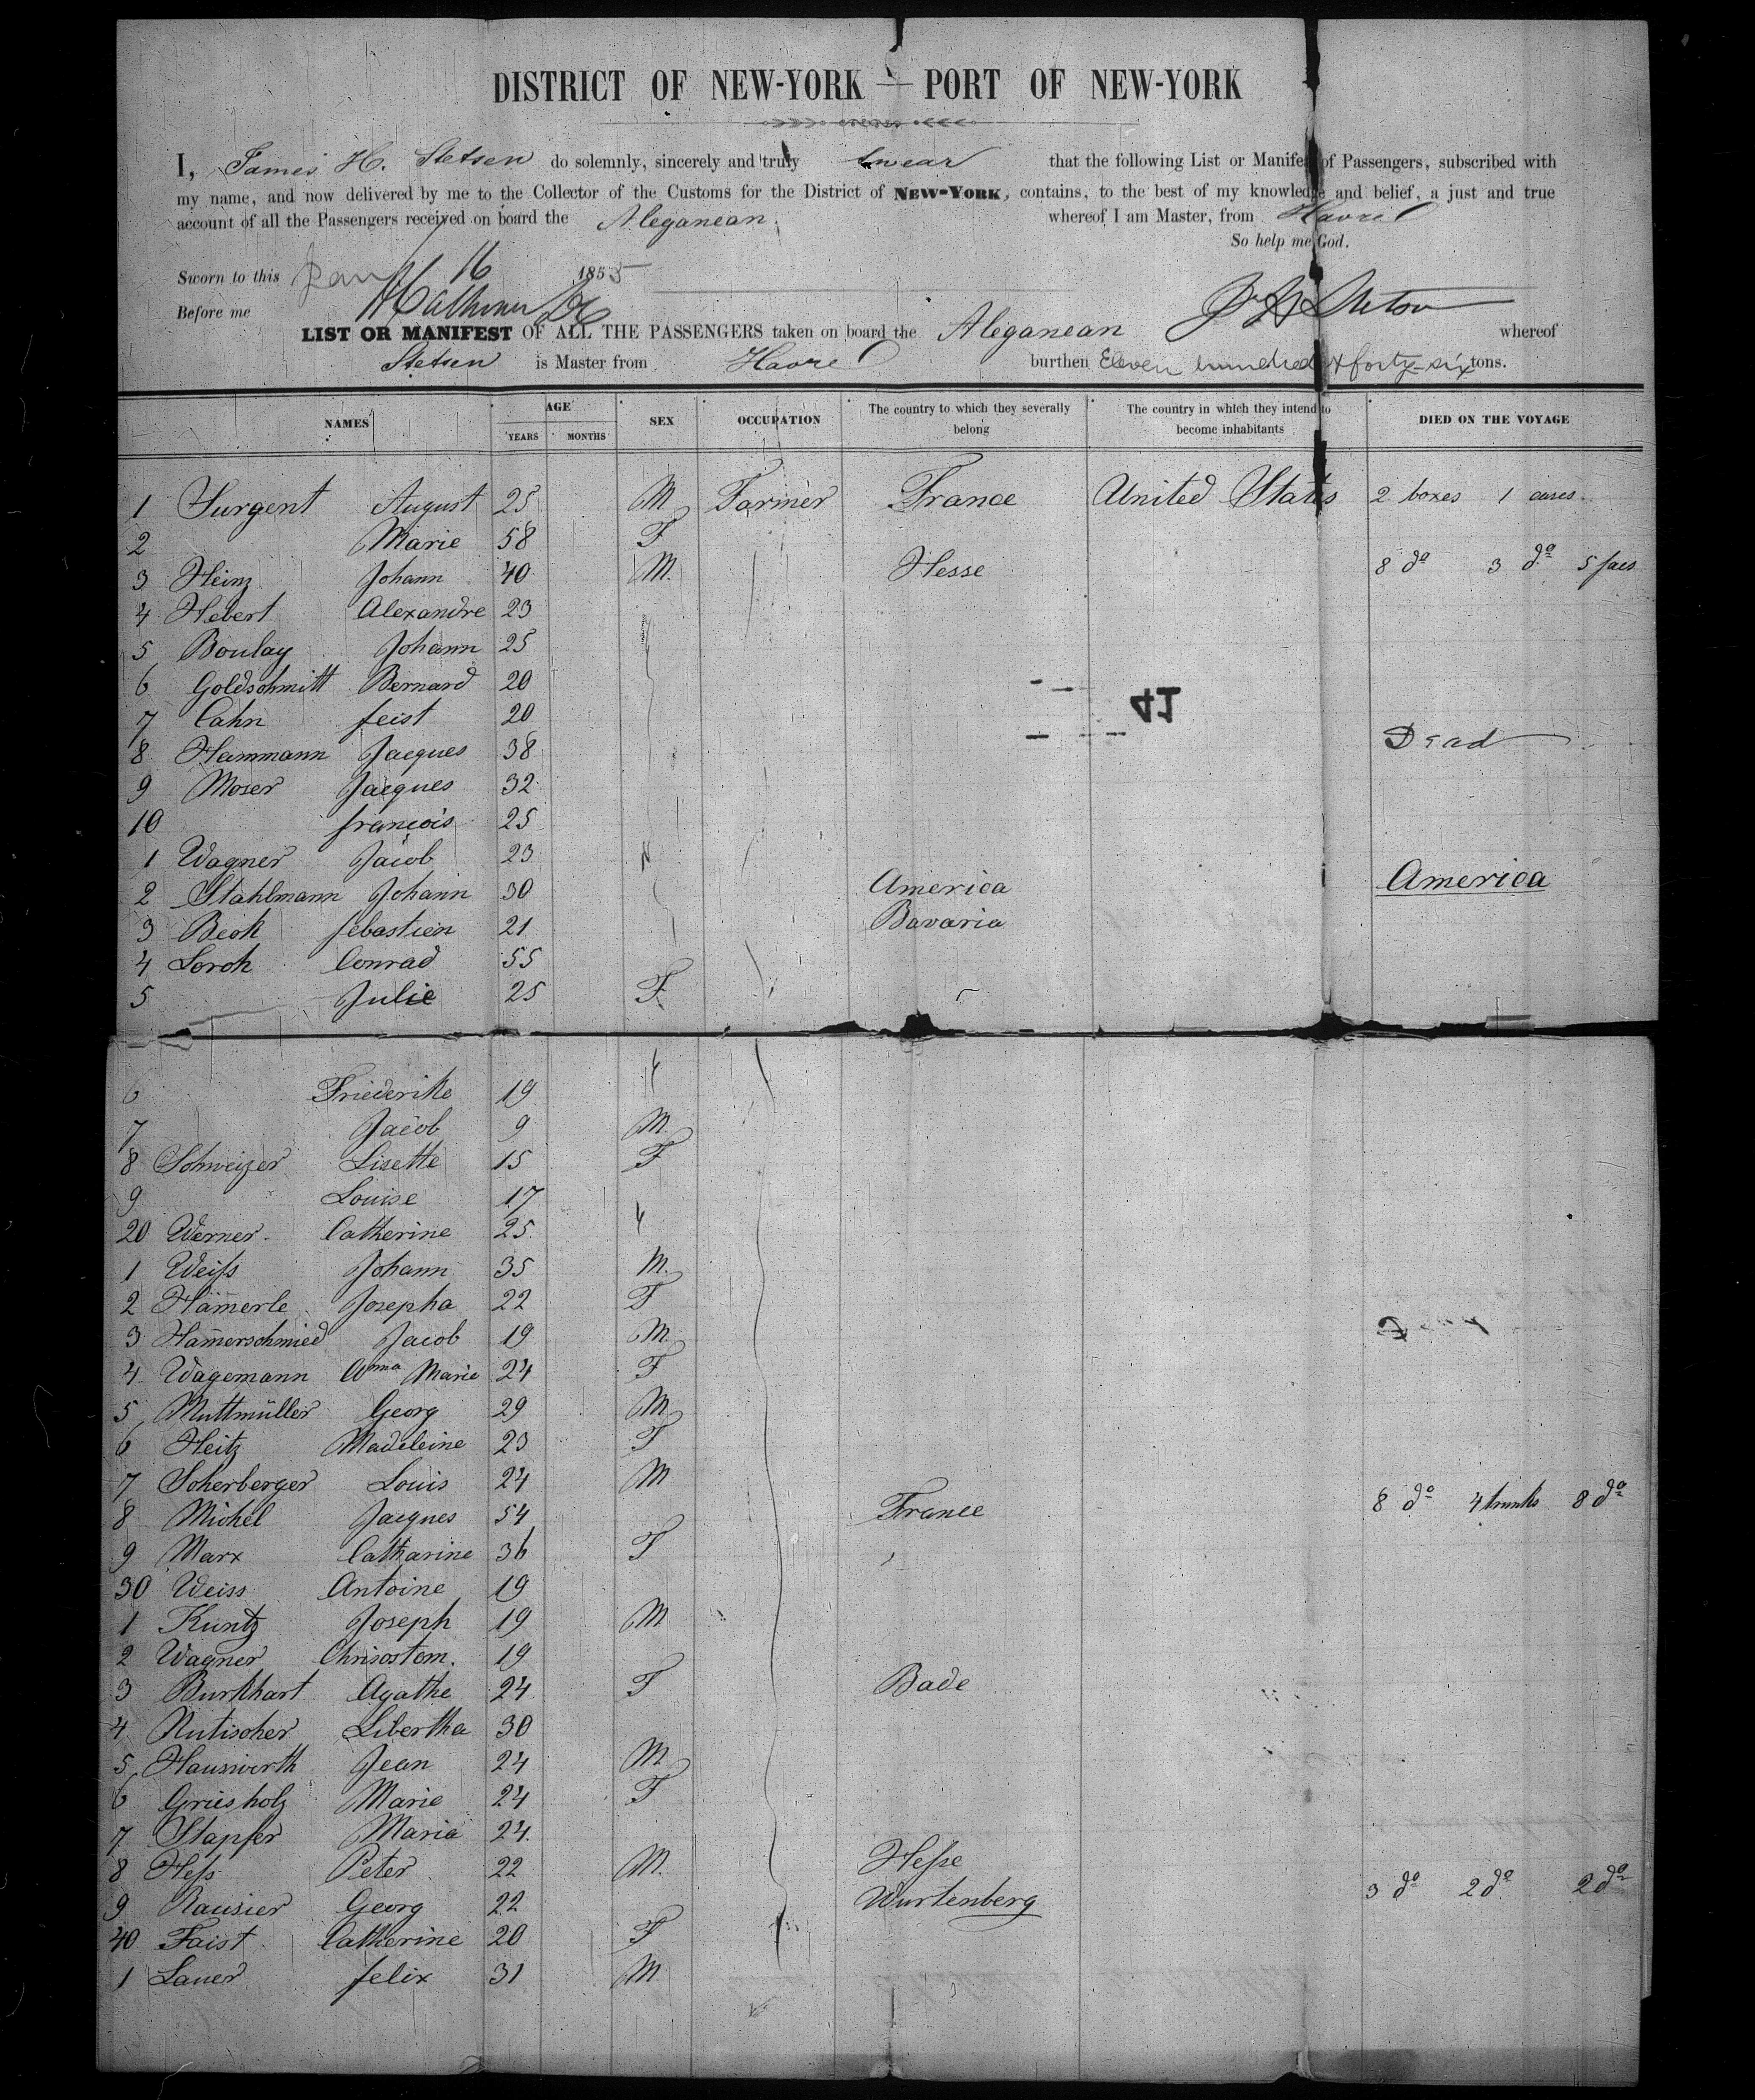 DISTRICT OF NEW-YORK — PORT OF NEW-YORK
I, James H. Stetsen do solemnly, sincerely and truly swear that the following List or Manifest of Passengers, subscribed with
my name, and now delivered by me to the Collector of the Customs for the District of NEW-YORK, contains, to the best of my knowledge and belief, a just and true
account of all the Passengers received on board the Aleganean whereof I am Master, from Havre
So help me God.
Sworn to this Jany 16 1855
Before me
LIST OR MANIFEST OF ALL THE PASSENGERS taken on board the Aleganean whereof
Stetsen is Master from Havre burthen Eleven hundred & forty-six tons.
NAMES AGE YEARS MONTHS SEX OCCUPATION The country to which they severally belong The country in which they intend to become inhabitants DIED ON THE VOYAGE
1 Surgent August 25 M Farmer France United States 2 boxes 1 cases
2 Marie 58 F
3 Heinz Johann 40 M. Hesse 8 do 3 do 5 pacs
4 Hebert Alexandre 23
5 Boulay Johann 25
6 Goldschmitt Bernard 20
41
7 Cahn feist 20
8 Hammann Jacques 38 Dead
9 Moser Jacques 32
10 francois 25
1 Wagner Jacob 23
2 Stahlmann Johann 30 America America
3 Beck sebastien 21 Bavaria
4 Lorch Conrad 55
5 Julie 25 F
6 Friederike 19
7 Jacob 9 M
8 Schweizer Lisette 15 F
9 Louise 17
20 Werner Catherine 25
1 Weiſs Johann 35 M.
2 Ham̄erle Josepha 22 F
3 Ham̄erschmied Jacob 19 M.
4 Wagemann Anna Marie 24 F
5 Muttmüller Georg 29 M
6 Heitz Madeleine 23 F
7 Scherberger Louis 24 M
8 Michel Jacques 54 France 8 do 4 trunks 8 do
9 Marx Catharine 36 F
30 Weiss Antoine 19
1 Kuntz Joseph 19 M
2 Wagner Chrisostom. 19
3 Burkhart Agathe 24 F Bade
4 Nutischer Libertha 30
5 Hauswirth Jean 24 M
6 Griesholz Marie 24 F
7 Stapfer Maria 24.
8 Heſs Peter 22 M. Heſse
9 Rausier Georg 22 Wurtenberg 3 do 2 do 2 do
40 Faist Catherine 20 F
1 Lauer felix 31 M